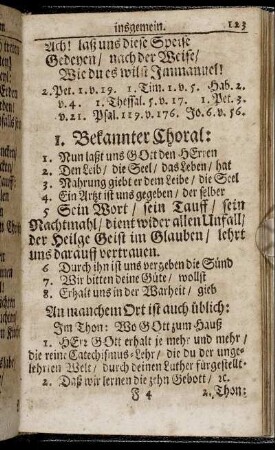 insgemein. 123
Ach! laß uns diese Speise
Gedeyen/ nach der Weise/
Wie du es wilst Immanuel!
2. Pet. 1. v. 19. 1. Tim. 1. v. 5. Hab. 2.
v. 4. 1. Thessal. 5. v. 17. 1. Pet. 3.
v. 21. Psal. 119. v. 176. Jo. 6. v. 56.
1. Bekannter Choral:
1. Nun laßt uns GOtt den HErren
2. Den Leib/ die Seel/ das Leben/ hat
3. Nahrung giebt er dem Leibe/ die Seel
4. Ein Artzt ist uns gegeben/ der selber
5 Sein Wort/ sein Tauff/ sein
Nachtmahl/ dient wider allen Unfall/
der Heilge Geist im Glauben/ lehrt
uns darauff vertrauen.
6 Durch ihn ist uns vergeben die Sünd
7. Wir bitten deine Güte/ wollst
8. Erhalt uns in der Warheit/ gieb
An manchem Ort ist auch üblich:
Im Thon: Wo GOtt zum Hauß
1. HErr GOtt erhalt je mehr und mehr/
die reine Catechismus-Lehr/ die du der unge-
lehrten Welt/ durch deinen Luther fürgestellt.
2. Daß wir lernen die zehn Gebott/ ꝛc.
F 4 2. Thon: